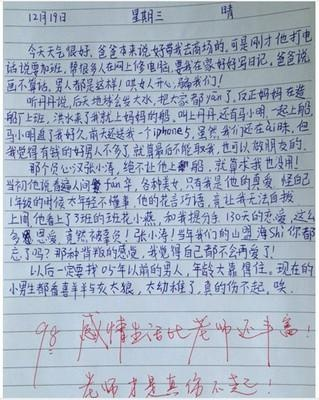 12月19日 星期三 晴
今天天气很好，爸爸本来说好带我去商场的，可是刚才他打电
话说要加班，帮很多人在网上修电脑，要我在家好好写日记，爸爸说
画不算话，男人都是这样！哄女人开心，骗我们！
听丹丹说，后天地球会发大水，把大家都淹了，反正妈妈在造
船厂上班，洪水来了我就上妈妈的船，叫上丹丹，还有马小明，一起上船，
马小明追了我好久，前天还送我一个iphone5，虽然我们还在ai昧，但
我觉得有钱的好男人不多了，就算最后不能娶我，也可以做朋友的。
那个负心汉张小涛，绝不让他上船，就算求我也没用！
当初他说看遍人间繁fan华，各种美女，只有我是他的真爱，怪自己
1年级的时候太年轻不懂事，他的花言巧语，竟让我无法自拔，
上周他看上了3班的班花小燕，和我提分手，130天的恋爱，这么
多恩爱，竟然被辜负！张小涛！当年我们的山盟海Shi你都
忘了吗？那种背叛的感觉，我觉得自己都不会再爱了！
以后一定要找05年以前的男人，年龄大靠得住。现在的
小男生都看喜羊羊与灰太狼，太幼稚了，真的伤不起，唉
98 感情生活比老师还丰富！
老师才是真伤不起！